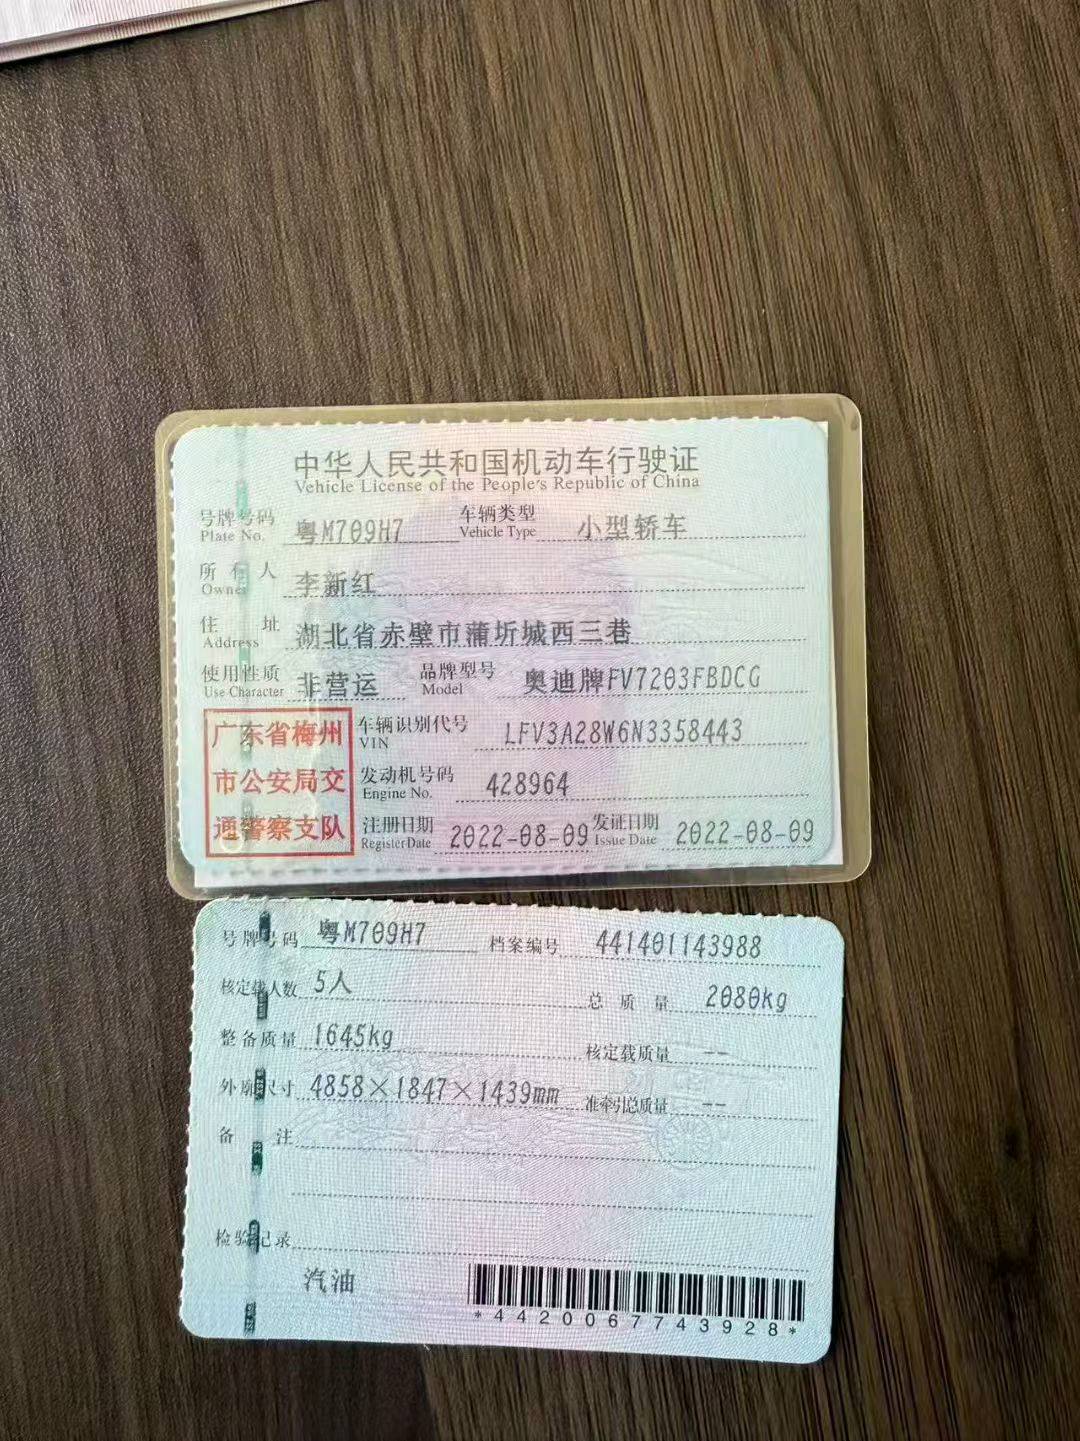 中华人民共和国机动车行驶证
Vehicle License of the People's Republic of China
号牌号码 粤M709H7 车辆类型 小型轿车
Plate No. Vehicle Type
所有人 李新红
Owner
住址 湖北省赤壁市蒲圻城西三巷
Address
使用性质 非营运 品牌型号 奥迪牌FV7203FBDCG
Use Character Model
广东省梅州
市公安局交
通警察支队
车辆识别代号 LFV3A28W6N3358443
VIN
发动机号码 428964
Engine No.
注册日期 2022-08-09 发证日期 2022-08-09
Register Date Issue Date
号牌号码 粤M709H7 档案编号 441401143988
核定载人数 5人 总质量 2080kg
整备质量 1645kg 核定载质量 --
外廓尺寸 4858×1847×1439mm 准牵引总质量 --
备注
检验记录
汽油
*4420067743928*